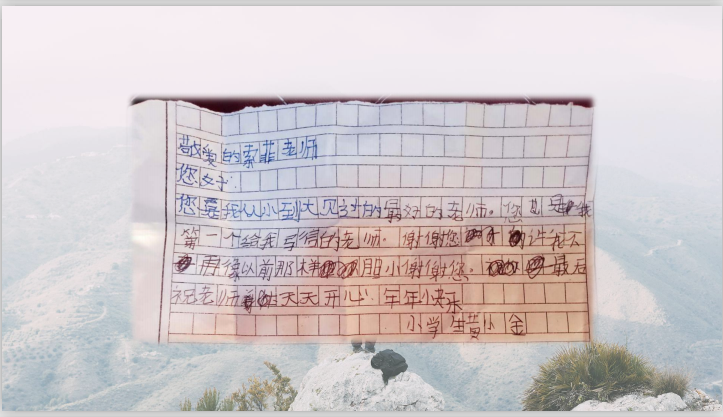 敬爱的索菲老师
您好
您是我从小到大见过的最好的老师。您也是我
第一个给我写信的老师。谢谢您 让我不会
再像以前那样 胆小谢谢您。 最后
祝老师 天天开心 年年快乐
小学生黄小金